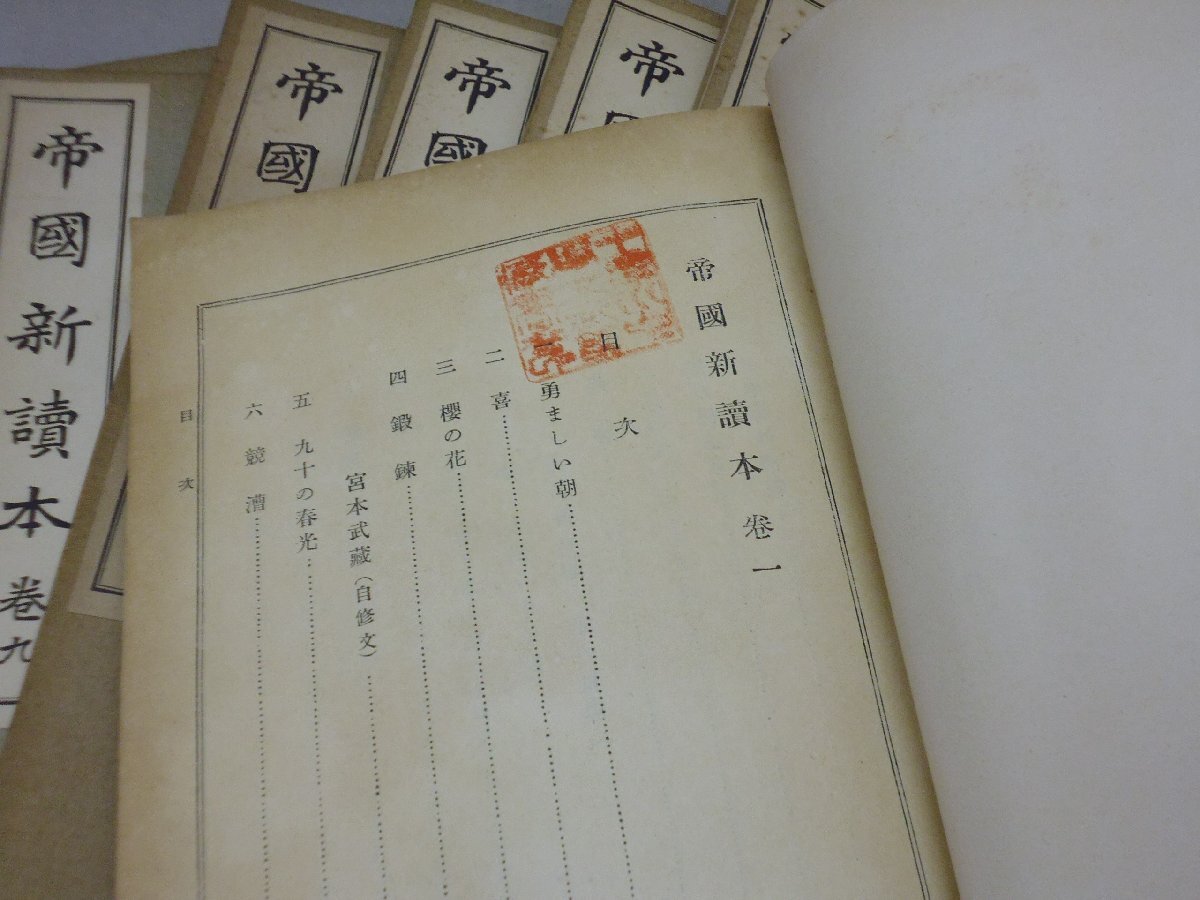 帝國新讀本 卷一
目次
一 勇ましい朝
二 喜
三 櫻の花
四 鍛鍊
宮本武藏(自修文)
五 九十の春光
六 競漕
目次
帝
帝國
帝國
帝國
帝國新讀本 卷九